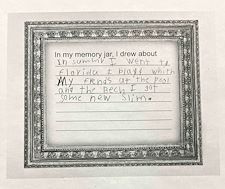 In my memory jar, I drew about
In summr I went to
Florida I playd which
My frends at the pool
And the Bech I got
some new Slim.